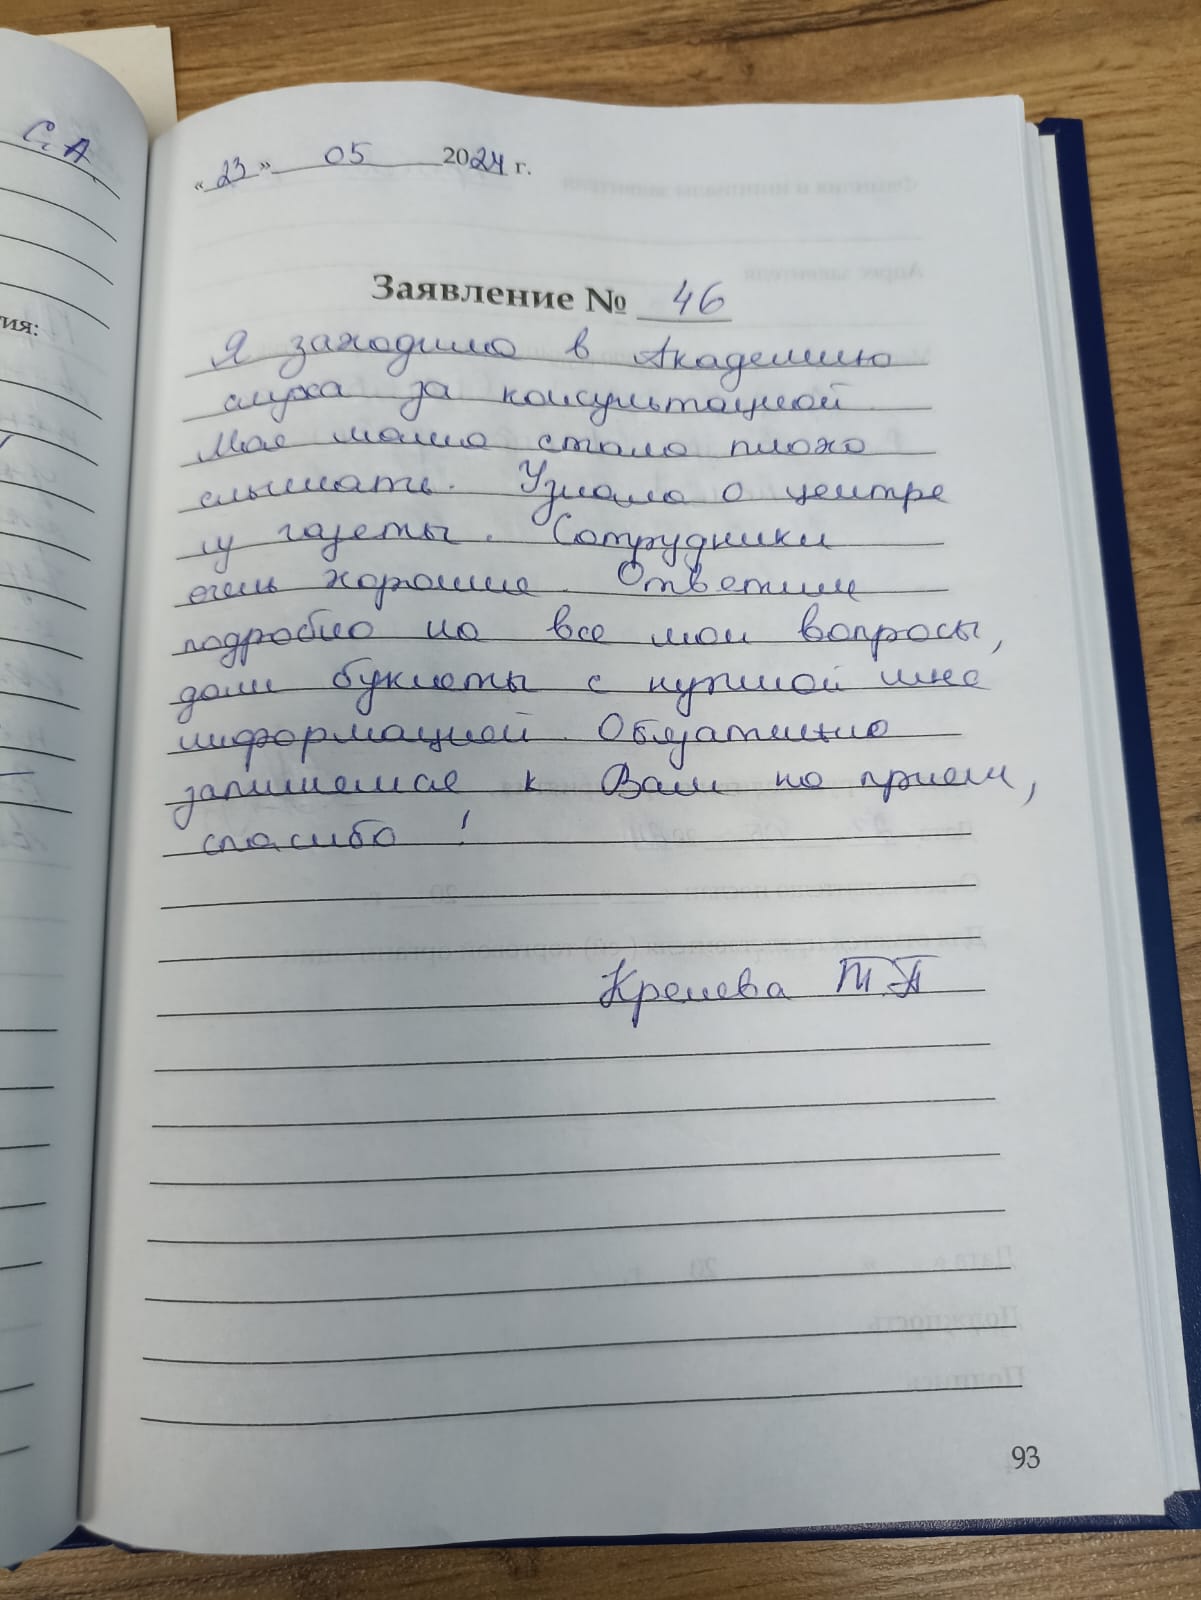 С. А
ия:
«23» 05 2024 г.
Заявление № 46
Я заходила в Академию
слуха за консультацией
Моя мама стала плохо
слышать. Узнала о центре
из газеты. Сотрудники
очень хорошие. Ответили
подробно на все мои вопросы,
дали буклеты с нужной мне
информацией. Обязательно
запишемся к Вам на прием,
спасибо !
Кренева Т.А
93